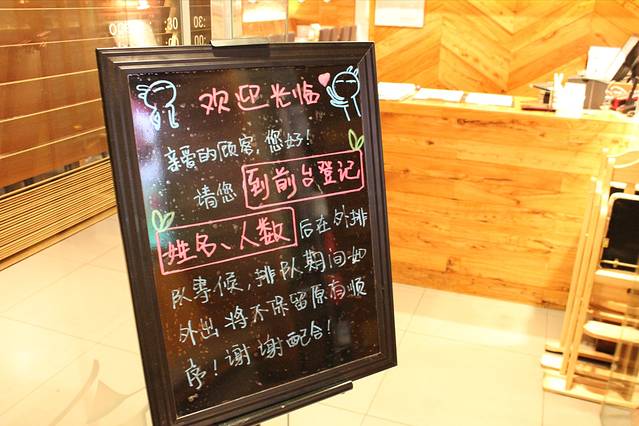 欢迎光临
亲爱的顾客,您好!
请您到前台登记
姓名、人数后在外排
队事候,排队期间如
外出将不保留原有顺
序!谢谢配合!